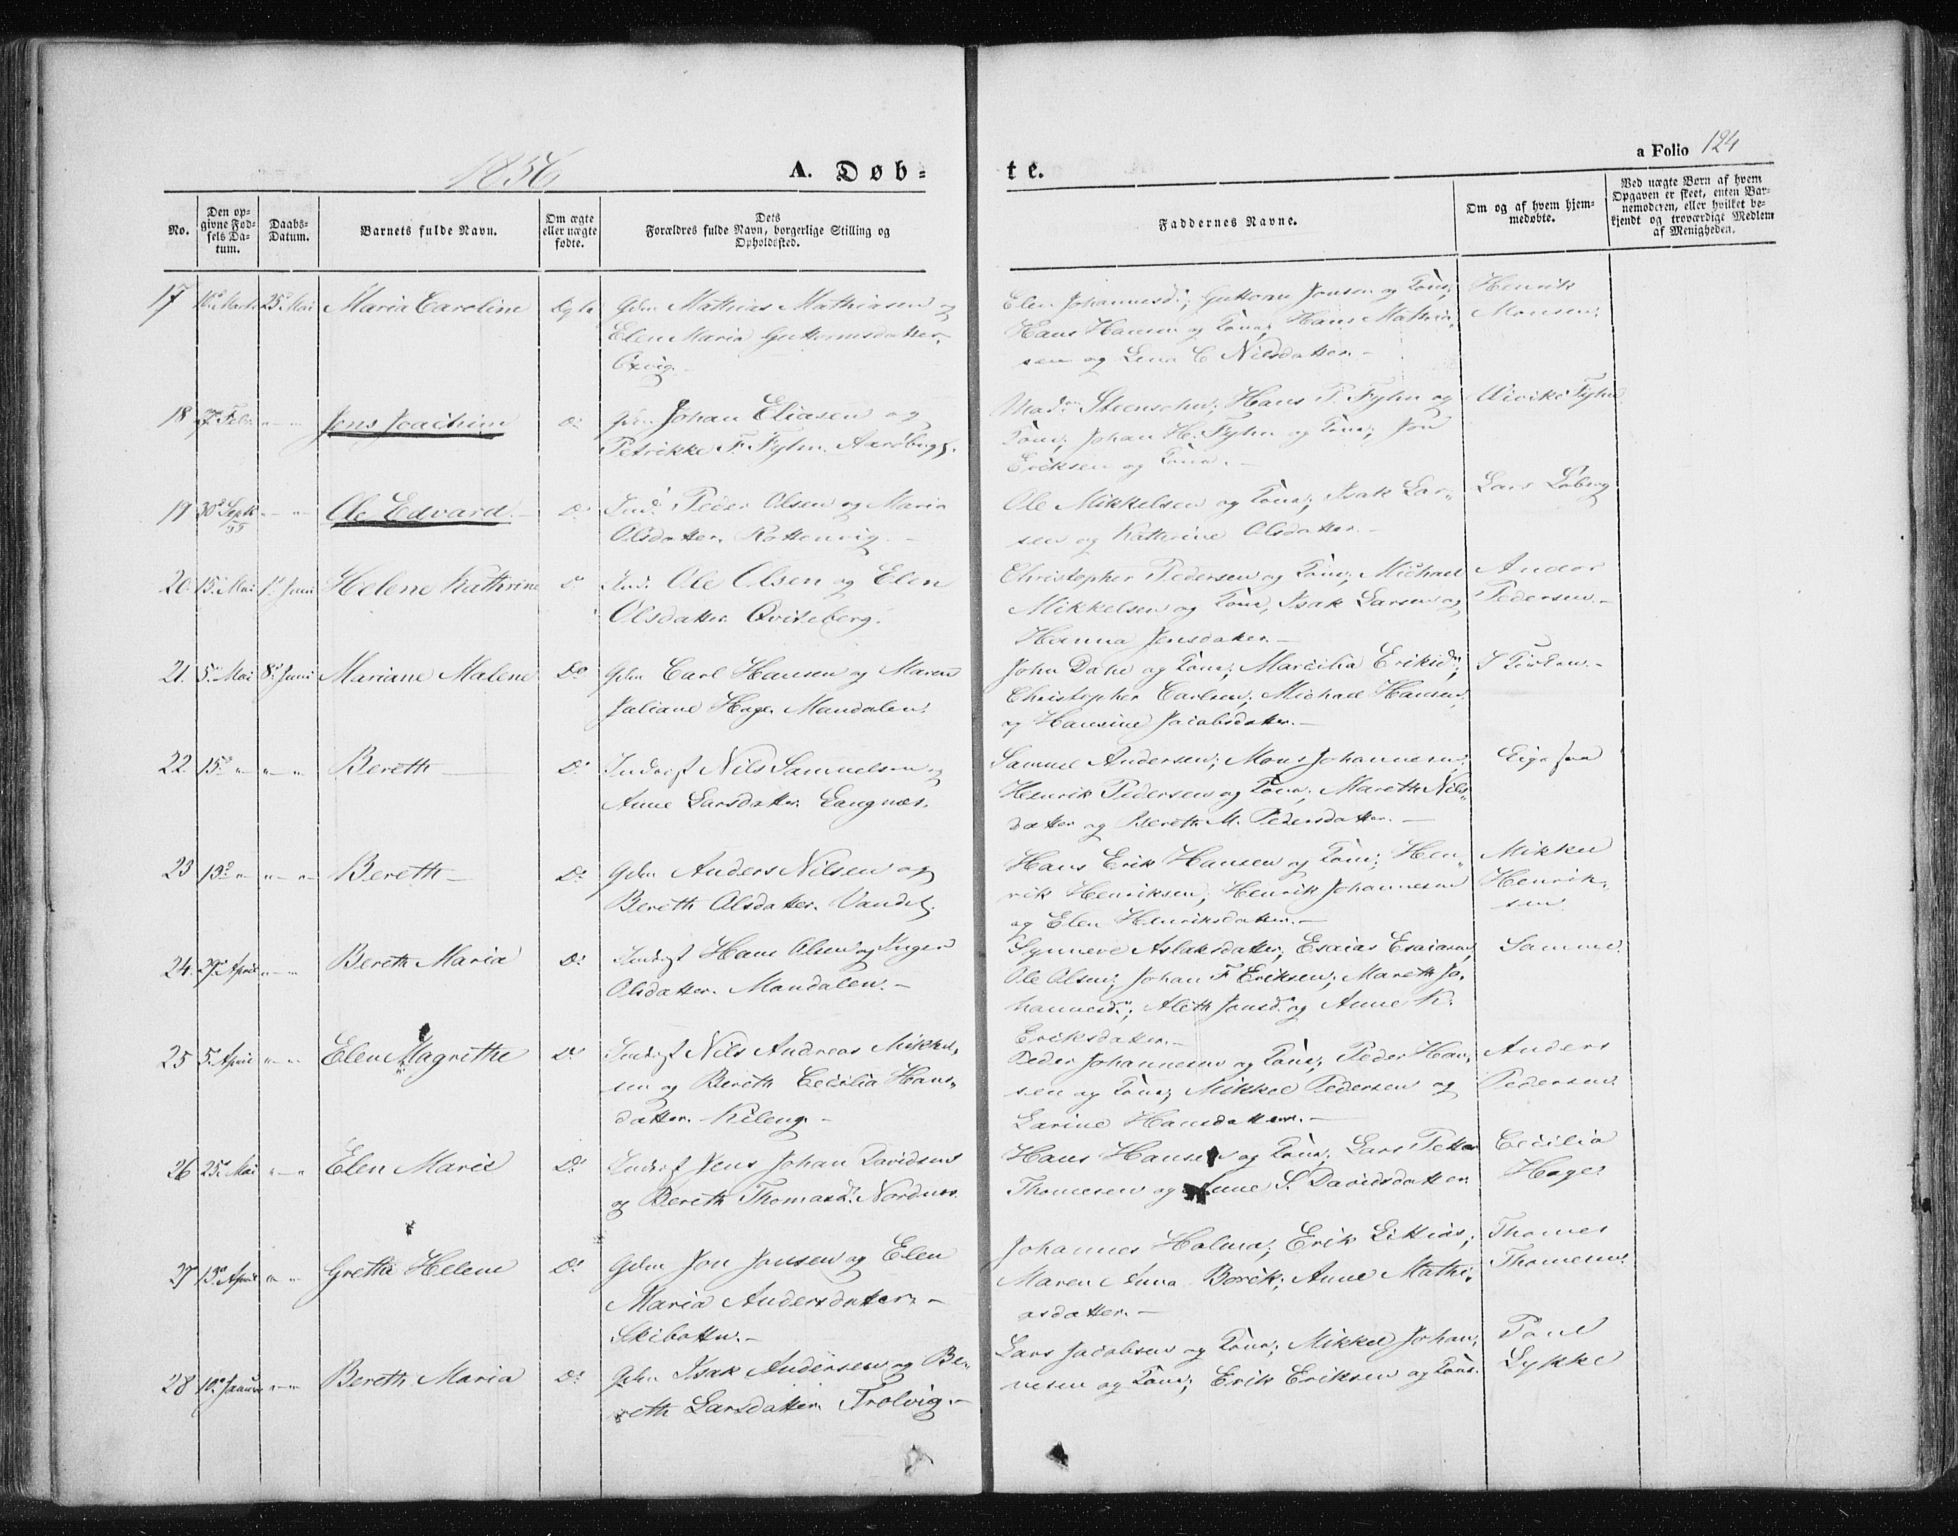 1856
A. Døb-
te.
a Folio 124
No.
Den op-
givne Fød-
sels Da-
tum.
Daabs-
Datum.
Barnets fulde Navn.
Om ægte
eller uægte
fødte.
Dets
Forældres fulde Navn, borgerlige Stilling og
Opholdssted.
Faddernes Navne.
Om og af hvem hjem-
medøbte.
Ved uægte Børn af hvem
Opgaven er skeet, enten Bar-
nemoderen, eller hvilket be-
kjendt og troværdigt Medlem
af Menigheden.
17 25 Mai Maria Caroline Ægte Gdm Mathias Mathiasen og
Elen Maria Guttormsdatter
Elen Johannesd; Guttorm Jonsen og Kone;
Hans Hansen og Kone; Hans Mathia-
sen og Lena C Nilsdatter.-
Henrik
Monsen.
18 7 Febr " " Jens Joachim Do Gdm Johan Eliasen og
Petrikke F. Fyhn.
Hans P. Fyhn og
Kone; Johan H. Fyhn og Kone; Jon
Eriksen og Kone.-
Ulrike Fyhn
19 30 Sept " " Ole Edvard.- Do Ind. Peder Olsen og Maria
55
Olsdatter. Kottenvig.-
Ole Mikkelsen og Kone; Isak Lar-
sen og Kathrine Olsdatter.-
Lars Löberg
20. 15 Mai 1 Juni Helene Kathrine Do Ind. Ole Olsen og Elen
Olsdatter Qviteberg.
Christopher Pedersen og Kone; Michael
Mikkelsen og Kone, Isak Larsen og
Hanna Jensdatter.-
Andor
Pedersen.-
21. 5 Mai 8 Juni Mariane Malene Do Gdm Carl Hansen og Maren
Juliane Hage. Mandalen.
John Dahl og Kone; Erikd;
Christopher Carlsen; Michael Hansen,
og Hansine Jacobsdatter.-
22. 15 " " " Bereth - Do Indergt Nils Samuelsen og
Anne Larsdatter. Langnæs.
Samuel Andersen; Mons Johannesen;
Henrik Pedersen og Kone, Mareth Nils-
datter og Bereth M. Pedersdatter.-
23 13 " " " Bereth - Do Gdm Anders Nilsen og
Bereth Olsdatter.
Hans Erik Hansen og Kone; Hen-
rik Henriksen; Henrik Johannesen
og Elen Henriksdatter.-
Mikkel
Henrik-
sen
24. 29 April " " Bereth Maria Do Indergt Hans Olsen og Inger
Olsdatter. Mandalen.-
Synneve Aslaksdatter, Esaias Esaiasen,
Ole Olsen; Johan F Eriksen; Mareth Jo-
hannesd; Aleth Jonsd. og Anne K.
Eriksdatter.-
Samme.
25 5 April " " Elen Magrethe Do Indergt Nils Andreas Mikkel-
sen og Bereth Cecilia Hans-
datter. Kileng.-
Peder Johannesen og Kone; Peder Han-
sen og Kone; Mikkel Pedersen og
Larine Hansdatter.-
Anders
Pedersen.
26 25 Mai " " Elen Marie Do Indergt Jens Johan Davidsen
og Bereth Thomasd. Nordnes
Hans Hansen og Kone; Lars Petter
Thomesen og Anne S. Davidsdatter
Cecilia
Hage.
27 13 April " " Grethe Helene Do Gdm Jon Jonsen og Elen
Maria Andersdatter.-
Skibotten.-
Johannes Holma; Erik
Maren Anna Borck; Anne Mathi-
asdatter.-
Thomas
Thomesen.
28 10 Januar " " Bereth Maria Do Gdm Isak Andersen og Be-
reth Larsdatter. Trolvig.-
Lars Jacobsen og Kone; Mikkel Johan-
nesen og Kone; Erik Eriksen og Kone.
Lykke